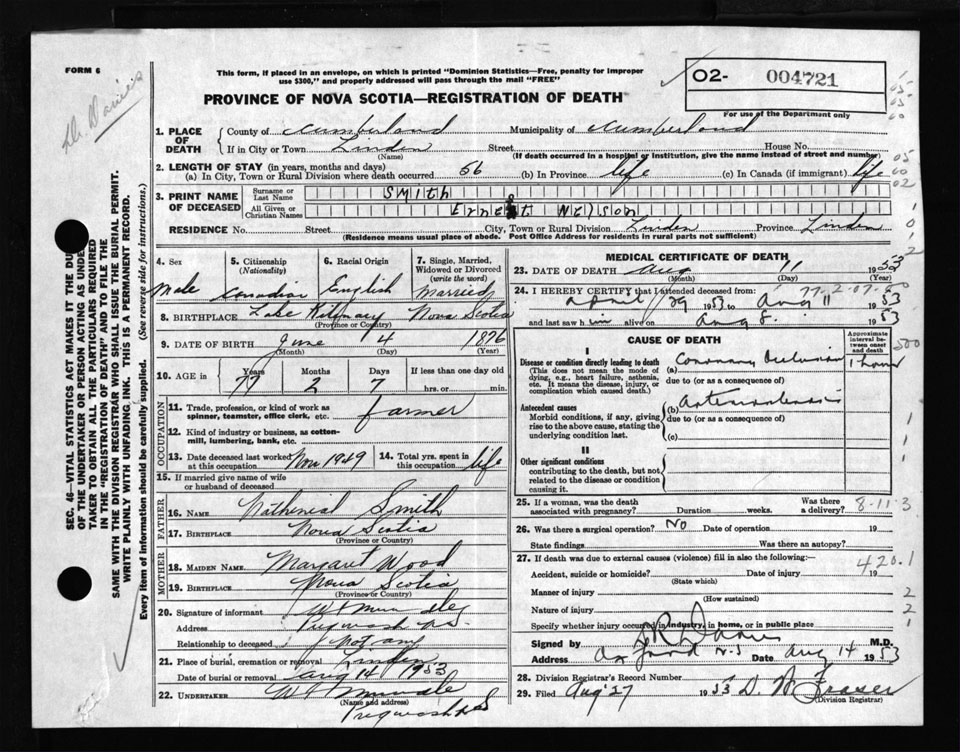 FORM 6
Dr. Davies
This form, if placed in an envelope, on which is printed "Dominion Statistics—Free, penalty for improper
use $300," and properly addressed will pass through the mail "FREE"
O2- 004721
For use of the Department only
PROVINCE OF NOVA SCOTIA—REGISTRATION OF DEATH
1. PLACE OF DEATH County of Cumberland Municipality of Cumberland
If in City or Town Linden Street House No.
(Name) (If death occurred in a hospital or institution, give the name instead of street and number)
2. LENGTH OF STAY (in years, months and days)
(a) In City, Town or Rural Division where death occurred 56 (b) In Province life (c) In Canada (if immigrant) life
3. PRINT NAME OF DECEASED Surname or Last Name Smith
All Given or Christian Names Ernest Nelson
RESIDENCE No. Street City, Town or Rural Division Linden Province Linden
(Residence means usual place of abode. Post Office Address for residents in rural parts not sufficient)
SEC. 46—VITAL STATISTICS ACT MAKES IT THE DUTY
OF THE UNDERTAKER OR PERSON ACTING AS UNDER-
TAKER TO OBTAIN ALL THE PARTICULARS REQUIRED
IN THE "REGISTRATION OF DEATH" AND TO FILE THE
SAME WITH THE DIVISION REGISTRAR WHO SHALL ISSUE THE BURIAL PERMIT.
WRITE PLAINLY WITH UNFADING INK. THIS IS A PERMANENT RECORD.
Every item of information should be carefully supplied. (See reverse side for instructions.)
4. Sex Male
5. Citizenship (Nationality) Canadian
6. Racial Origin English
7. Single, Married, Widowed or Divorced (write the word) Married
8. BIRTHPLACE Lake Nova Scotia
(Province or Country)
9. DATE OF BIRTH June 4 1876
(Month) (Day) (Year)
10. AGE in Years 77 Months 2 Days 7 If less than one day old hrs. or min.
OCCUPATION
11. Trade, profession, or kind of work as spinner, teamster, office clerk, etc. farmer
12. Kind of industry or business, as cotton-mill, lumbering, bank, etc.
13. Date deceased last worked at this occupation Nov 1949
14. Total yrs. spent in this occupation life
15. If married give name of wife or husband of deceased
FATHER
16. NAME Nathenial Smith
17. BIRTHPLACE Nova Scotia
(Province or Country)
MOTHER
18. MAIDEN NAME Margaret Wood
19. BIRTHPLACE Nova Scotia
(Province or Country)
20. Signature of informant
Address Pugwash N.S.
Relationship to deceased Not any
21. Place of burial, cremation or removal Linden
Date of burial or removal Aug 14 1953
22. UNDERTAKER
(Name and address) Pugwash N S
MEDICAL CERTIFICATE OF DEATH
23. DATE OF DEATH Aug 11 1953
(Month) (Day) (Year)
24. I HEREBY CERTIFY that I attended deceased from:
April 29 1953 to Aug 11 1953
and last saw him alive on Aug 8 1953
CAUSE OF DEATH
Approximate interval between onset and death
I
Disease or condition directly leading to death
(This does not mean the mode of dying, e.g., heart failure, asthenia, etc. It means the disease, injury, or complication which caused death.)
(a) Coronary Occlusion 1 hour
due to (or as a consequence of)
Antecedent causes
Morbid conditions, if any, giving rise to the above cause, stating the underlying condition last.
(b) Arteriosclerosis
due to (or as a consequence of)
(c)
II
Other significant conditions
contributing to the death, but not related to the disease or condition causing it.
25. If a woman, was the death associated with pregnancy? Duration weeks. Was there a delivery?
8-11-3
26. Was there a surgical operation? No Date of operation 19
State findings Was there an autopsy?
27. If death was due to external causes (violence) fill in also the following:—
420.1
Accident, suicide or homicide? Date of injury 19
(State which)
Manner of injury
(How sustained)
Nature of injury
Specify whether injury occurred in industry, in home, or in public place
Signed by M.D.
Address Oxford N.S Date Aug 14 1953
28. Division Registrar's Record Number
29. Filed Aug 27 1953 D. W. Fraser
(Division Registrar)